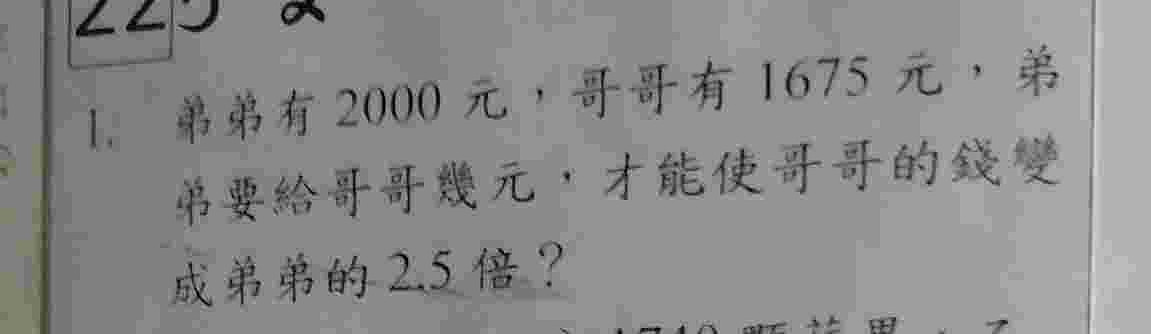 225
1. 弟弟有 2000 元，哥哥有 1675 元，弟
弟要給哥哥幾元，才能使哥哥的錢變
成弟弟的 2.5 倍？